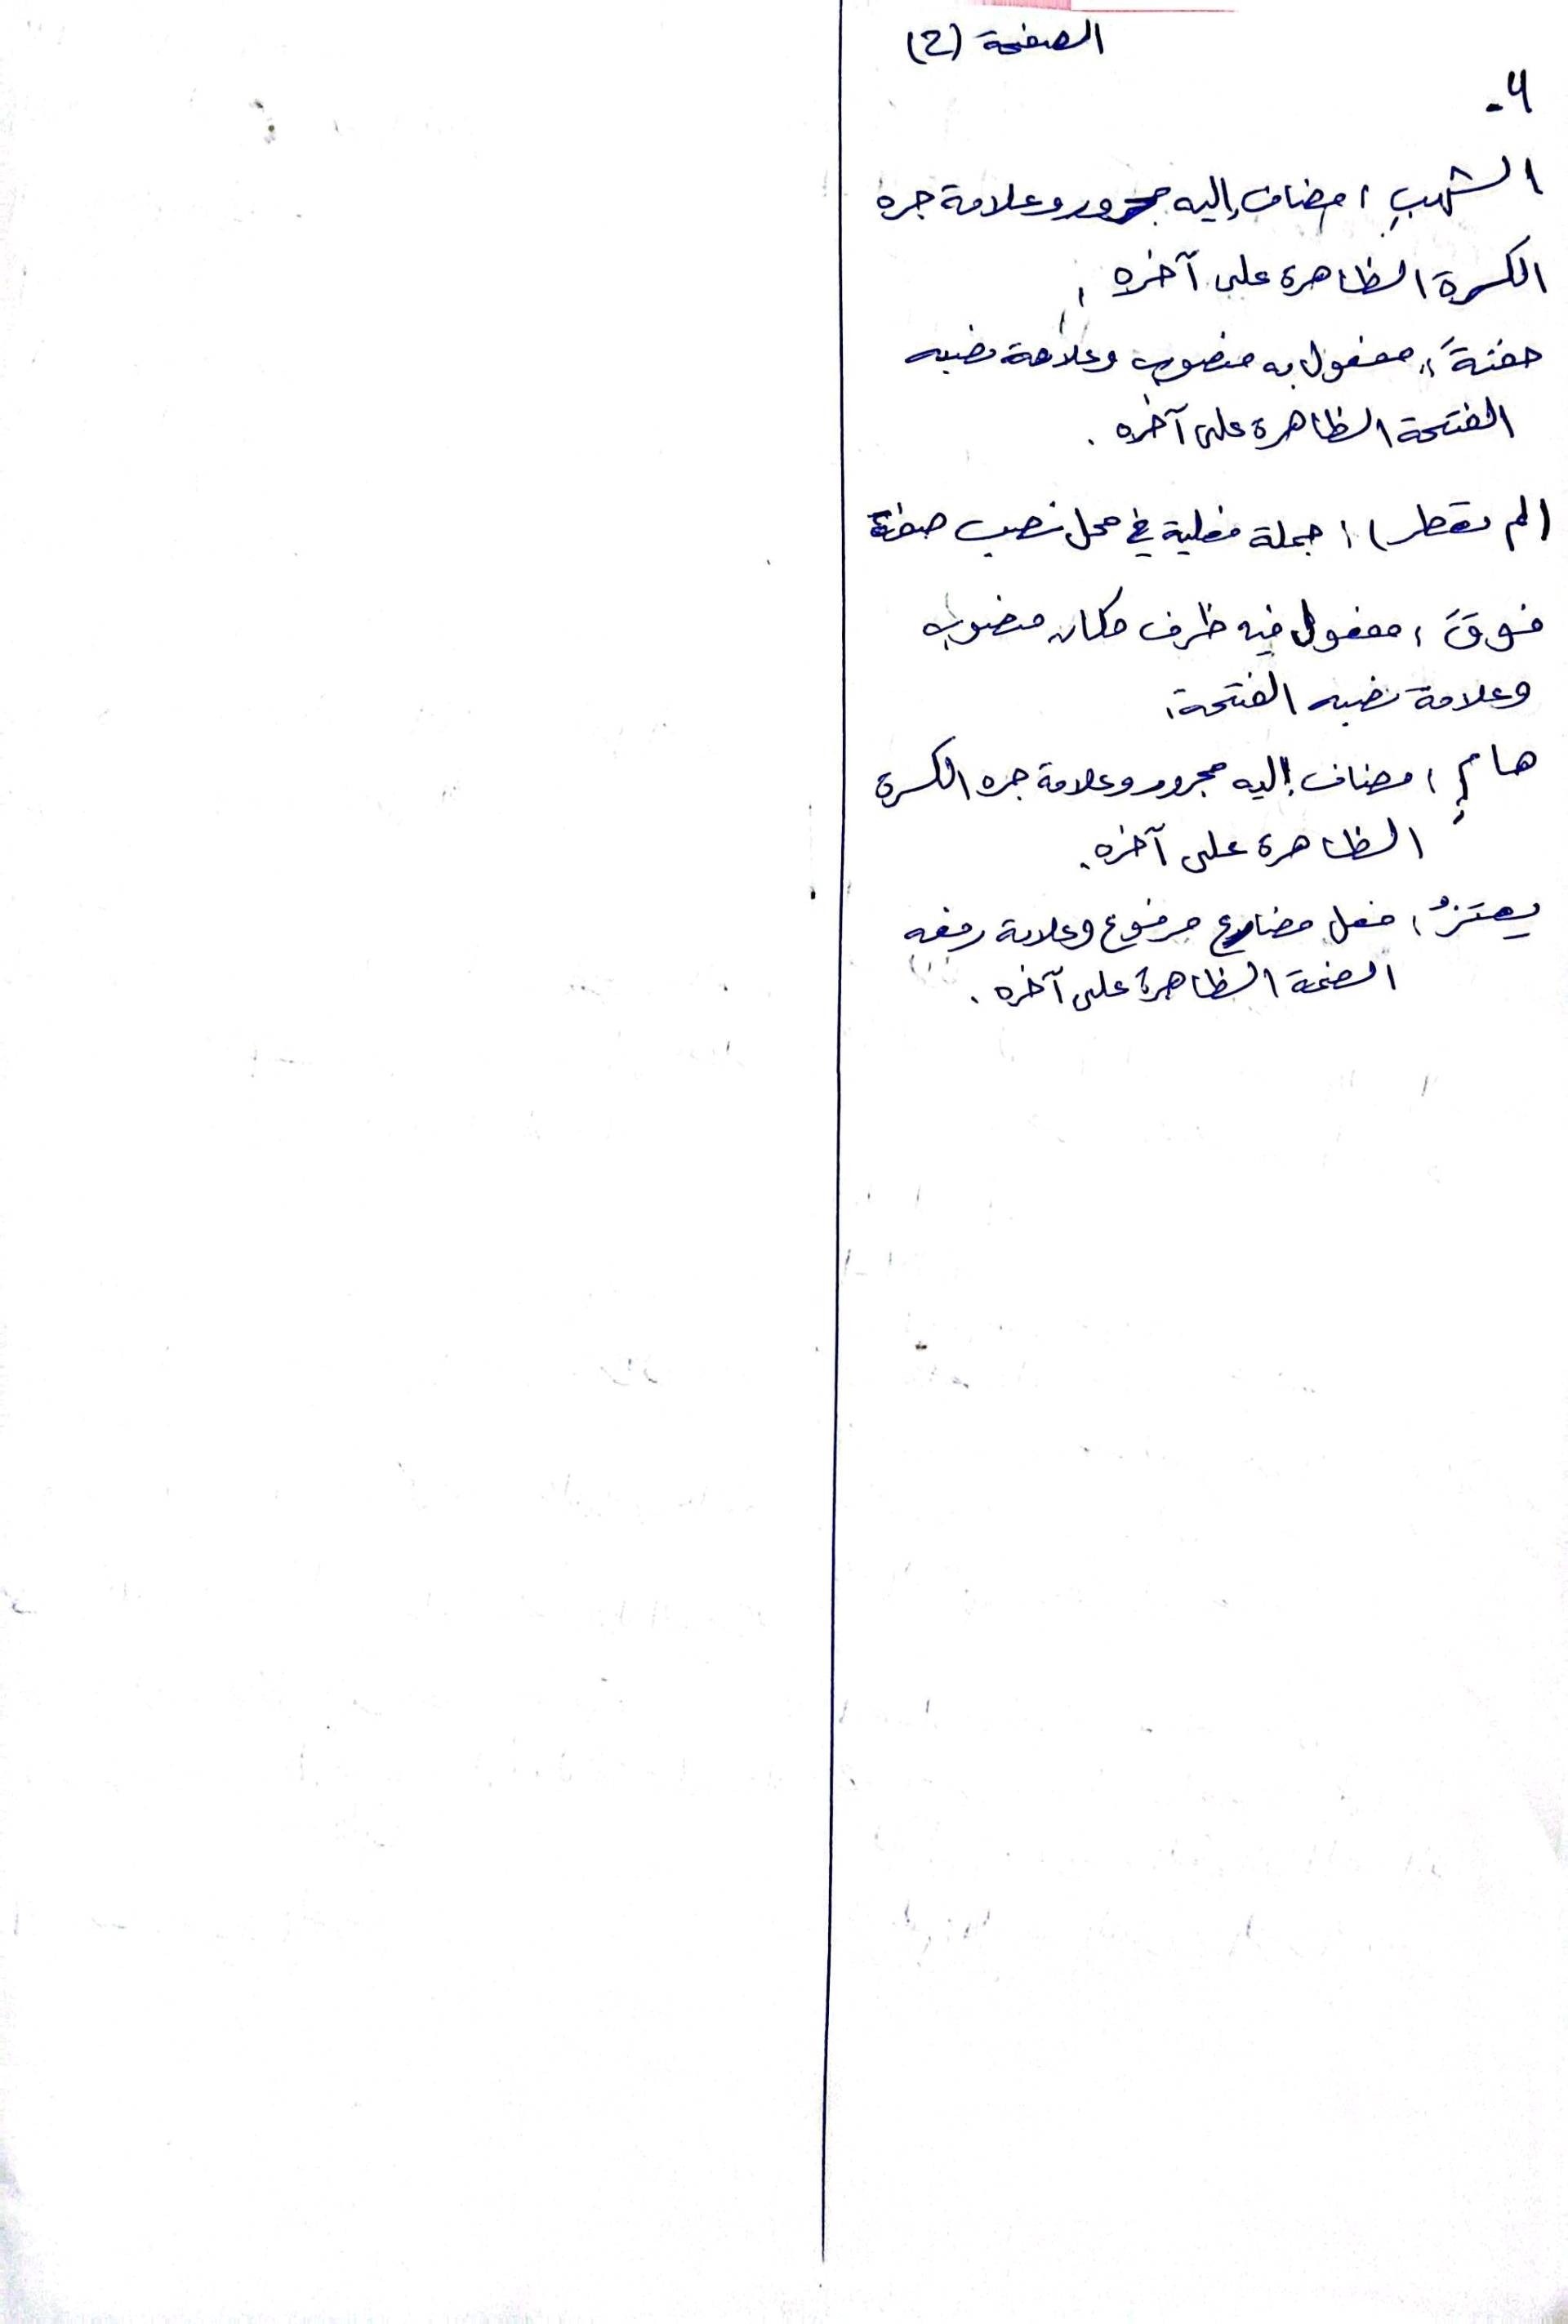 الصفحة (2)
4-
الشهبِ : مضاف إليه مجرور وعلامة جره
الكسرة الظاهرة على آخره .
حفنةً : مفعول به منصوب وعلامة نصبه
الفتحة الظاهرة على آخره .
(لم تقطر) : جملة فعلية في محل نصب صفة
فوقَ : مفعول فيه ظرف مكان منصوب
وعلامة نصبه الفتحة .
هامِ : مضاف إليه مجرور وعلامة جره الكسرة
الظاهرة على آخره .
يهتزُ : فعل مضارع مرفوع وعلامة رفعه
الضمة الظاهرة على آخره .